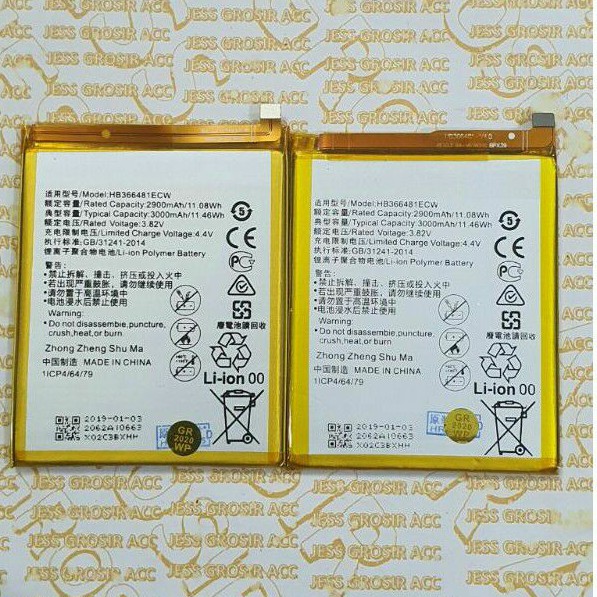 JESS GROSIR ACC
适用型号/Model:HB366481ECW
额定容量/Rated Capacity:2900mAh/11.08Wh
典型容量/Typical Capacity:3000mAh/11.46Wh
额定电压/Rated Voltage:3.82V
充电限制电压/Limited Charge Voltage:4.4V
执行标准:GB/31241-2014
锂离子聚合物电池/Li-ion Polymer Battery
警告:
•禁止拆解、撞击、挤压或投入火中
•若出现严重鼓胀,请勿继续使用
•请勿置于高温环境中
•电池浸水后禁止使用
Warning:
•Do not disassemble,puncture,
crush,heat,or burn
Zhong Zheng Shu Ma
中国制造 MADE IN CHINA
1ICP4/64/79
5
CE
廢電池請回收
Li-ion 00
2019-01-03
2062AI0663
X02C3BXHH
GR
2020
WP
适用型号/Model:HB366481ECW
额定容量/Rated Capacity:2900mAh/11.08Wh
典型容量/Typical Capacity:3000mAh/11.46Wh
额定电压/Rated Voltage:3.82V
充电限制电压/Limited Charge Voltage:4.4V
执行标准:GB/31241-2014
锂离子聚合物电池/Li-ion Polymer Battery
警告:
•禁止拆解、撞击、挤压或投入火中
•若出现严重鼓胀,请勿继续使用
•请勿置于高温环境中
•电池浸水后禁止使用
Warning:
•Do not disassemble,puncture,
crush,heat,or burn
Zhong Zheng Shu Ma
中国制造 MADE IN CHINA
1ICP4/64/79
5
CE
廢電池請回收
Li-ion 00
2019-01-03
2062AI0663
X02C3BXHH
GR
2020
WP